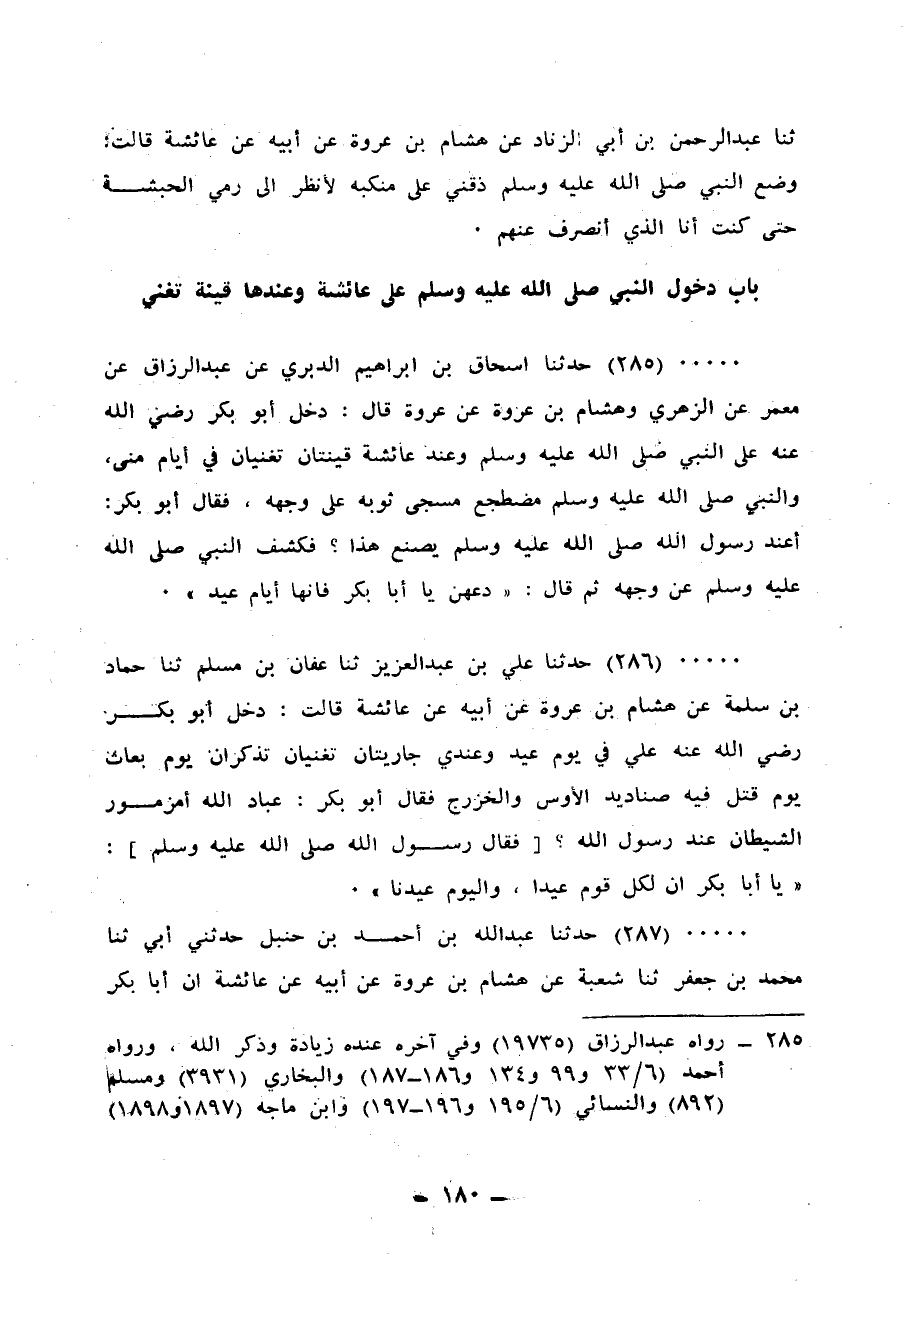 ثنا عبدالرحمن بن أبي الزناد عن هشام بن عروة عن أبيه عن عائشة قالت:
وضع النبي صلى الله عليه وسلم ذقني على منكبه لأنظر الى رمي الحبشة
حتى كنت أنا الذي أنصرف عنهم ٠
باب دخول النبي صلى الله عليه وسلم على عائشة وعندها قينة تغني
٠٠٠٠٠ (٢٨٥) حدثنا اسحاق بن ابراهيم الدبري عن عبدالرزاق عن
معمر عن الزهري وهشام بن عروة عن عروة قال : دخل أبو بكر رضي الله
عنه على النبي صلى الله عليه وسلم وعند عائشة قينتان تغنيان في أيام منى،
والنبي صلى الله عليه وسلم مضطجع مسجى ثوبه على وجهه ، فقال أبو بكر:
أعند رسول الله صلى الله عليه وسلم يصنع هذا ؟ فكشف النبي صلى الله
عليه وسلم عن وجهه ثم قال : « دعهن يا أبا بكر فانها أيام عيد » ٠
٠٠٠٠٠ (٢٨٦) حدثنا علي بن عبدالعزيز ثنا عفان بن مسلم ثنا حماد
بن سلمة عن هشام بن عروة عن أبيه عن عائشة قالت : دخل أبو بكر
رضي الله عنه علي في يوم عيد وعندي جاريتان تغنيان تذكران يوم بعاث
يوم قتل فيه صناديد الأوس والخزرج فقال أبو بكر : عباد الله أمزمور
الشيطان عند رسول الله ؟ [ فقال رسول الله صلى الله عليه وسلم ] :
« يا أبا بكر ان لكل قوم عيدا ، واليوم عيدنا » ٠
٠٠٠٠٠ (٢٨٧) حدثنا عبدالله بن أحمد بن حنبل حدثني أبي ثنا
محمد بن جعفر ثنا شعبة عن هشام بن عروة عن أبيه عن عائشة ان أبا بكر
٢٨٥ – رواه عبدالرزاق (١٩٧٣٥) وفي آخره عنده زيادة وذكر الله ، ورواه
أحمد (٣٣/٦ و٩٩ و١٣٤ و١٨٦–١٨٧) والبخاري (٣٩٣١) ومسلم
(٨٩٢) والنسائي (١٩٥/٦ و١٩٦–١٩٧) وابن ماجه (١٨٩٧و١٨٩٨)
– ١٨٠ –